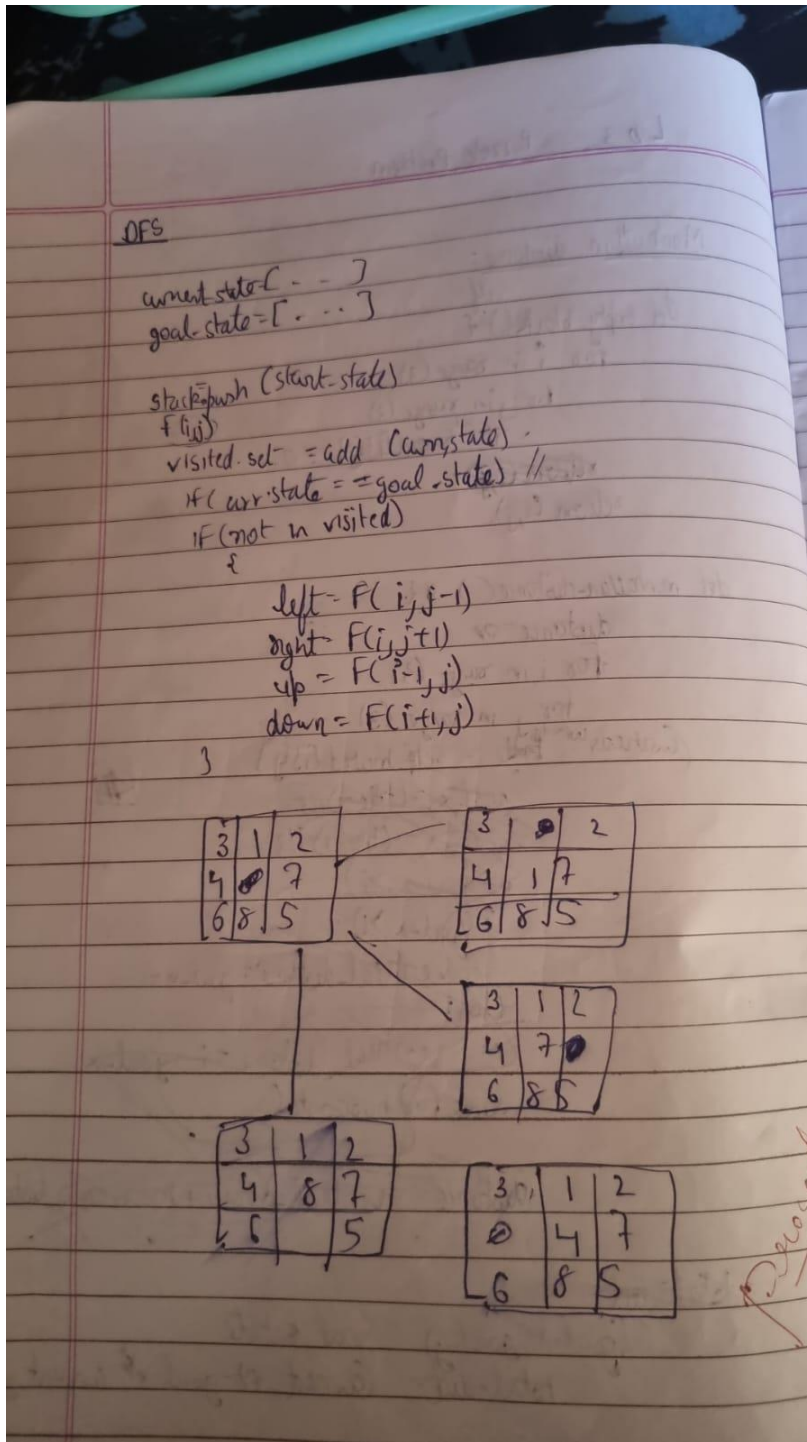 DFS
current state = [ . . ]
goal-state = [ . . . ]
stack = push (start-state)
f(i,j)
visited.set = add (curr,state) .
if (curr.state = = goal.state) //
if (not in visited)
{
left = F( i, j-1)
right = F(i, j+1)
up = F( i-1, j)
down = F(i+1, j)
}
3 1 2
4 0 7
6 8 5
3 0 2
4 1 7
6 8 5
3 1 2
4 7 0
6 8 5
3 1 2
4 8 7
6 5
3 1 2
0 4 7
6 8 5